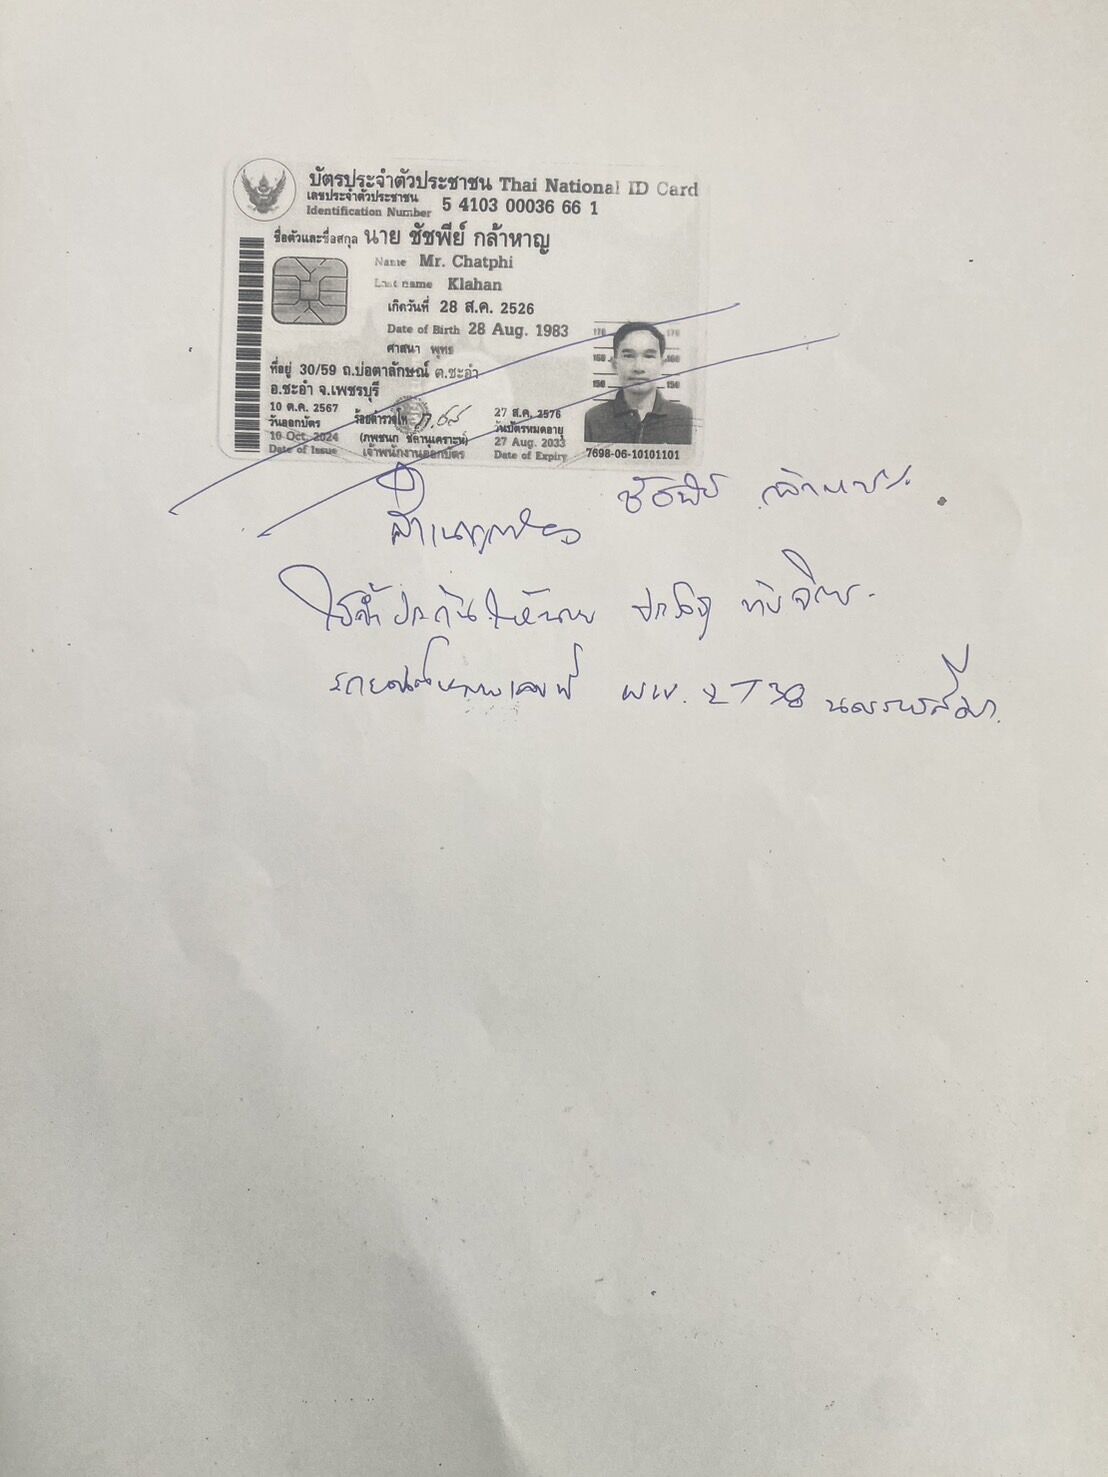 บัตรประจำตัวประชาชน Thai National ID Card
เลขประจำตัวประชาชน
Identification Number 5 4103 00036 66 1
ชื่อตัวและชื่อสกุล นาย ชัชพีย์ กล้าหาญ
Name Mr. Chatphi
Last name Klahan
เกิดวันที่ 28 ส.ค. 2526
Date of Birth 28 Aug. 1983
ศาสนา พุทธ
ที่อยู่ 30/59 ถ.บ่อตาลักษณ์ ต.ชะอำ
อ.ชะอำ จ.เพชรบุรี
10 ต.ค. 2567
วันออกบัตร
10 Oct. 2024
Date of Issue
ร้อยตำรวจโท
เจ้าพนักงานออกบัตร
27 ส.ค. 2576
วันบัตรหมดอายุ
27 Aug. 2033
Date of Expiry
170 170
160 160
150 150
7698-06-10101101
ชัชพีย์ กล้าหาญ
สำเนาถูกต้อง
ใช้ค้ำประกันให้นาย
รถยนต์หมายเลขที่ นครราชสีมา